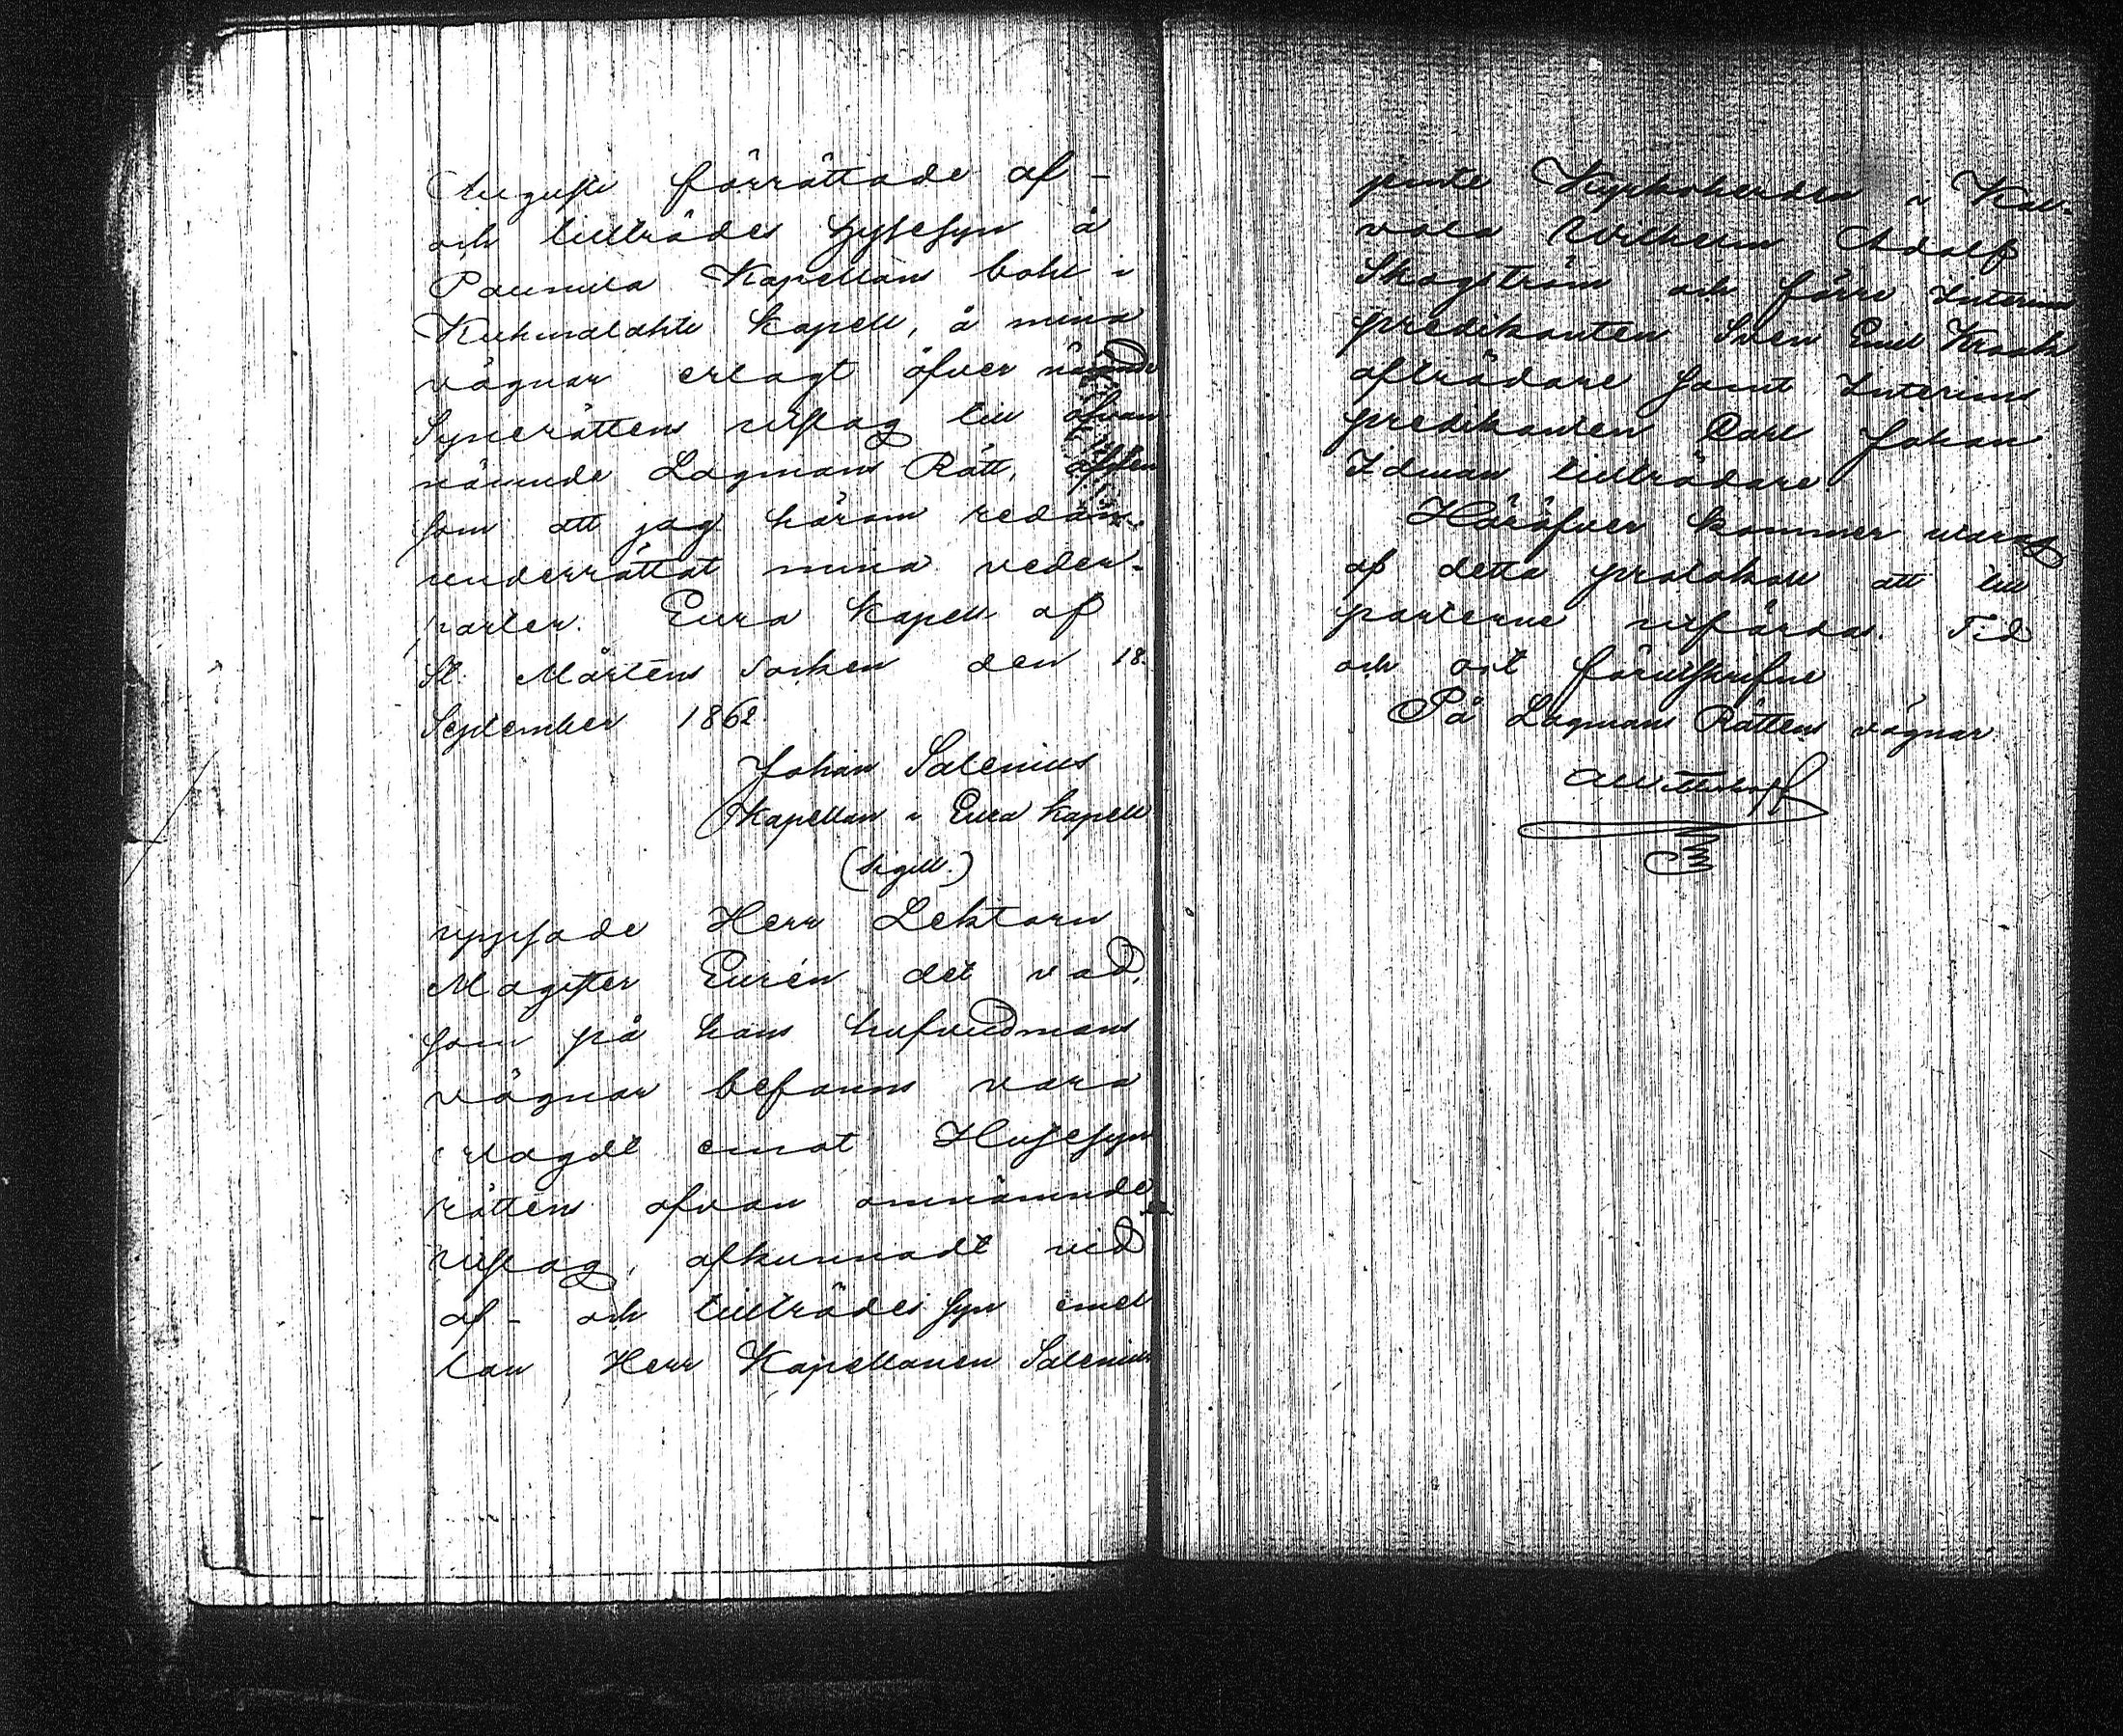 Augusti förrättade af-
och tillträdes Hysesyn å
Paunula Kapellans bohl i
Kuhmalahti kapell, å mina
vägnar erlagt öfver nämnde
Synerättens utslag till ofvan
nämnde Lagmans Rätt, äfven
som att jag härom redan
underrättat mina veder-
parter. Eura kapell af
St. Mårtens Socken den 18.
September 1862.
Johan Salenius
Kapellan i Eura kapell
(Sigill.)
uppsade Herr Lektorn
Magister Eurén det vad,
som på hans hufvudmans
vägnar befanns vara
erlagdt emot Husesyns
rätten ofvan omnämnde
utslag, afkunnadt vid
af- och tillträdes syn emel
lan Herr Kapellanen Salenius
jemte Kyrkoherden i Kal-
vola Wilhelm Adolf
Skogström och förre Interims
predikanten Sven Emil Kraak
afträdare samt Interims
predikanten Carl Johan
Idman tillträdare.
Häröfver kommer utdrag
af detta protokoll att till
parterne utfärdas. Tid
och ort förutskrifne
På Lagmans Rättens vägnar